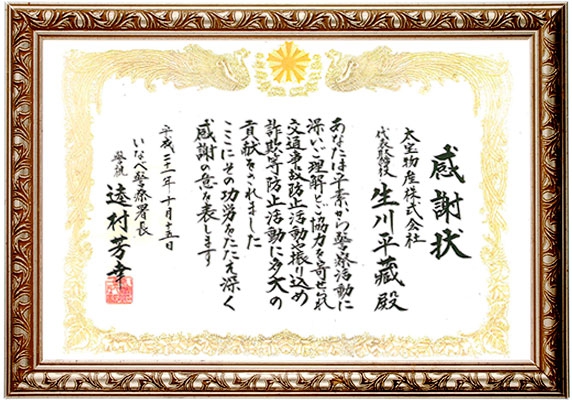 感謝状
太宝物産株式会社
代表取締役 生川平藏殿
あなたは平素から警察活動に
深いご理解とご協力を寄せられ
交通事故防止活動や振り込め
詐欺等防止活動に多大の
貢献をされました
ここにその功労をたたえ深く
感謝の意を表します
平成二十一年十月十五日
いなべ警察署長
警視 遠村芳幸